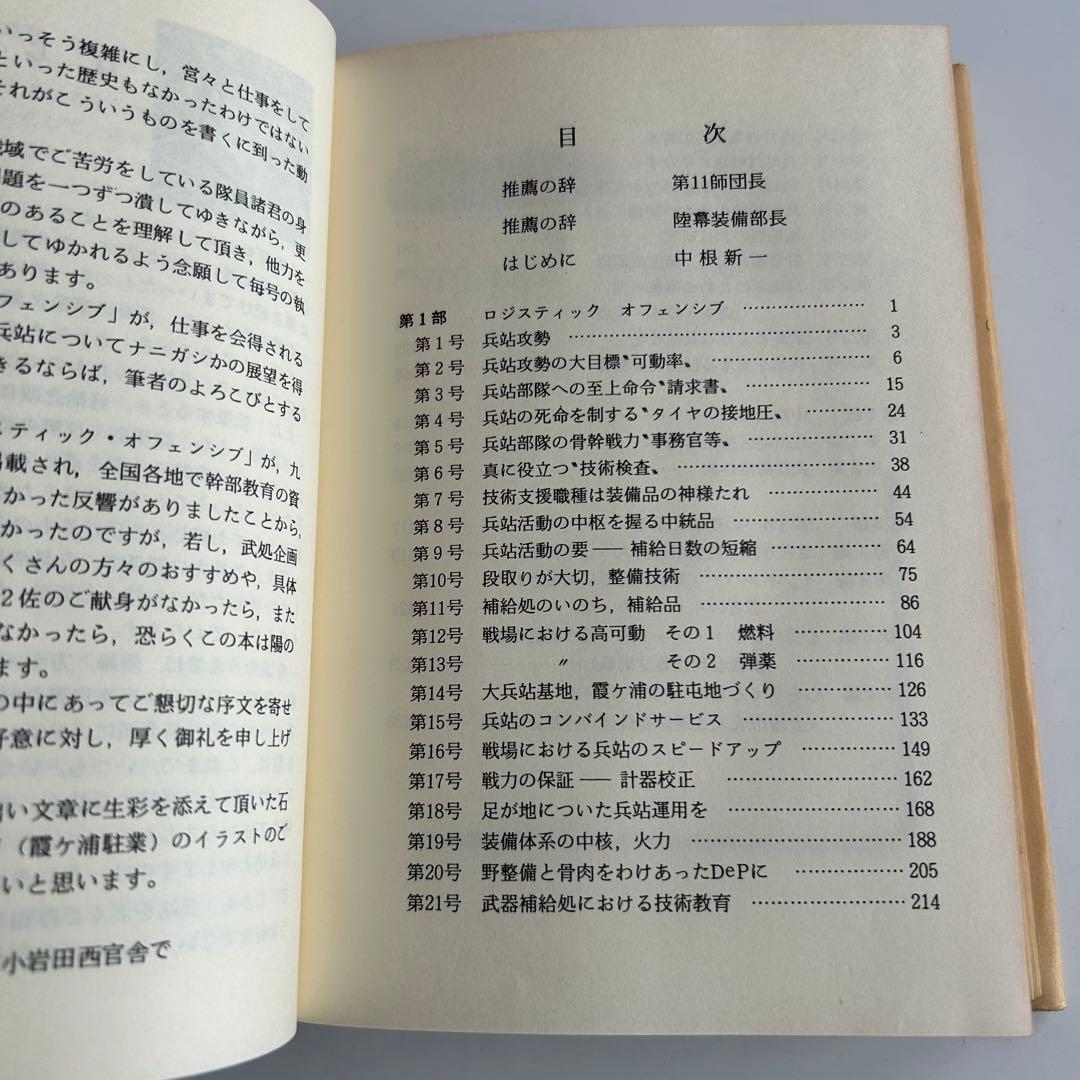 いっそう複雑にし，営々と仕事をして
といった歴史もなかったわけではない
それがこういうものを書くに到った動
域でご苦労をしている隊員諸君の身
題を一つずつ潰してゆきながら，更
のあることを理解して頂き，他力を
してゆかれるよう念願して毎号の執
あります。
フェンシブ」が，仕事を会得される
兵站についてナニガシかの展望を得
きるならば，筆者のよろこびとする
スティック・オフェンシブ」が，九
掲載され，全国各地で幹部教育の資
かった反響がありましたことから，
かったのですが，若し，武処企画
くさんの方々のおすすめや，具体
２佐のご献身がなかったら，また
なかったら，恐らくこの本は陽の
ます。
の中にあってご懇切な序文を寄せ
好意に対し，厚く御礼を申し上げ
い文章に生彩を添えて頂いた石
（霞ケ浦駐業）のイラストのご
いと思います。
小岩田西官舎で
目 次
推薦の辞 第11師団長
推薦の辞 陸幕装備部長
はじめに 中根新一
第１部 ロジスティック オフェンシブ ………………… 1
第１号 兵站攻勢 ………………… 3
第２号 兵站攻勢の大目標〝可動率〟 ………………… 6
第３号 兵站部隊への至上命令〝請求書〟 ………………… 15
第４号 兵站の死命を制する〝タイヤの接地圧〟 ………… 24
第５号 兵站部隊の骨幹戦力〝事務官等〟 ………………… 31
第６号 真に役立つ〝技術検査〟 ………………… 38
第７号 技術支援職種は装備品の神様たれ ………………… 44
第８号 兵站活動の中枢を握る中統品 ………………… 54
第９号 兵站活動の要――補給日数の短縮 ………………… 64
第10号 段取りが大切，整備技術 ………………… 75
第11号 補給処のいのち，補給品 ………………… 86
第12号 戦場における高可動 その１ 燃料 ………………… 104
第13号 〃 その２ 弾薬 ………………… 116
第14号 大兵站基地，霞ケ浦の駐屯地づくり ………………… 126
第15号 兵站のコンバインドサービス ………………… 133
第16号 戦場における兵站のスピードアップ ………………… 149
第17号 戦力の保証――計器校正 ………………… 162
第18号 足が地についた兵站運用を ………………… 168
第19号 装備体系の中核，火力 ………………… 188
第20号 野整備と骨肉をわけあったDePに ………………… 205
第21号 武器補給処における技術教育 ………………… 214